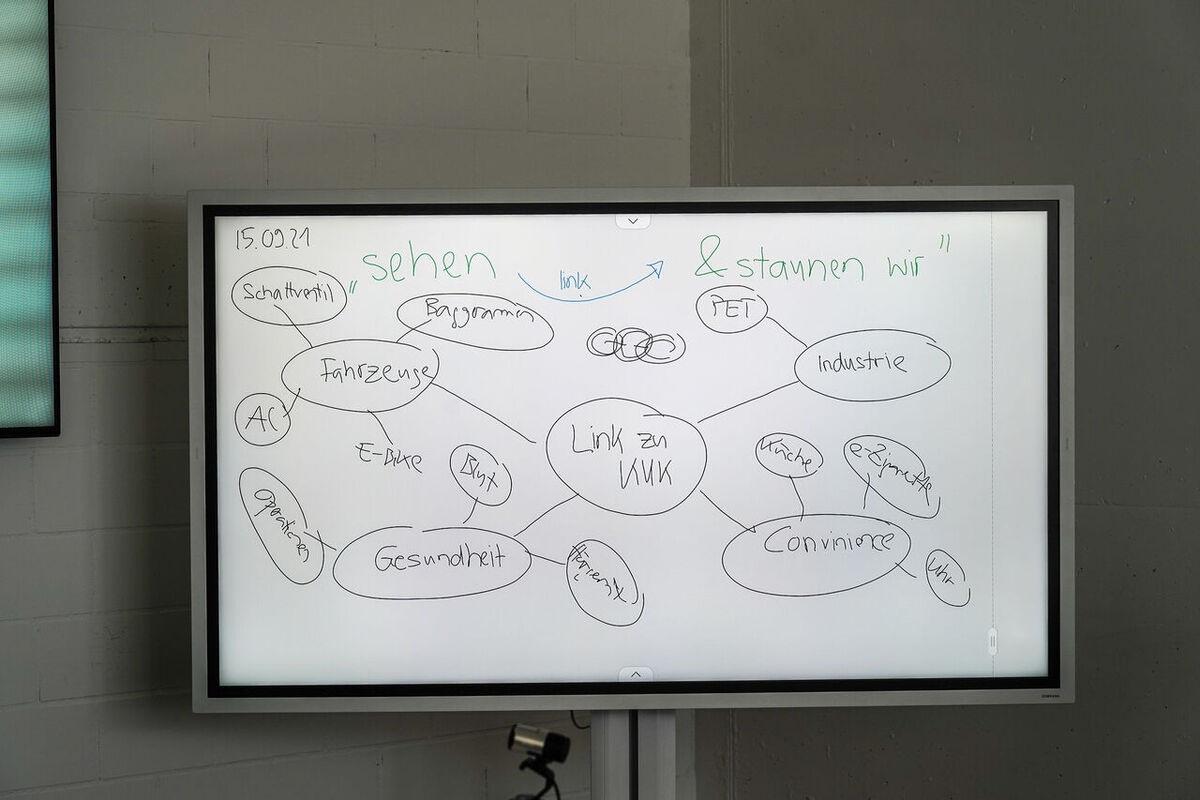 15.09.21
"sehen
link
& staunen wir"
Schaltventil
Baggerarmen
PET
Fahrzeuge
Industrie
AC
E-Bike
Link zu
KUK
Blut
Küche
e-Zigarette
Operationen
Gesundheit
Convinience
Uhr
SAMSUNG